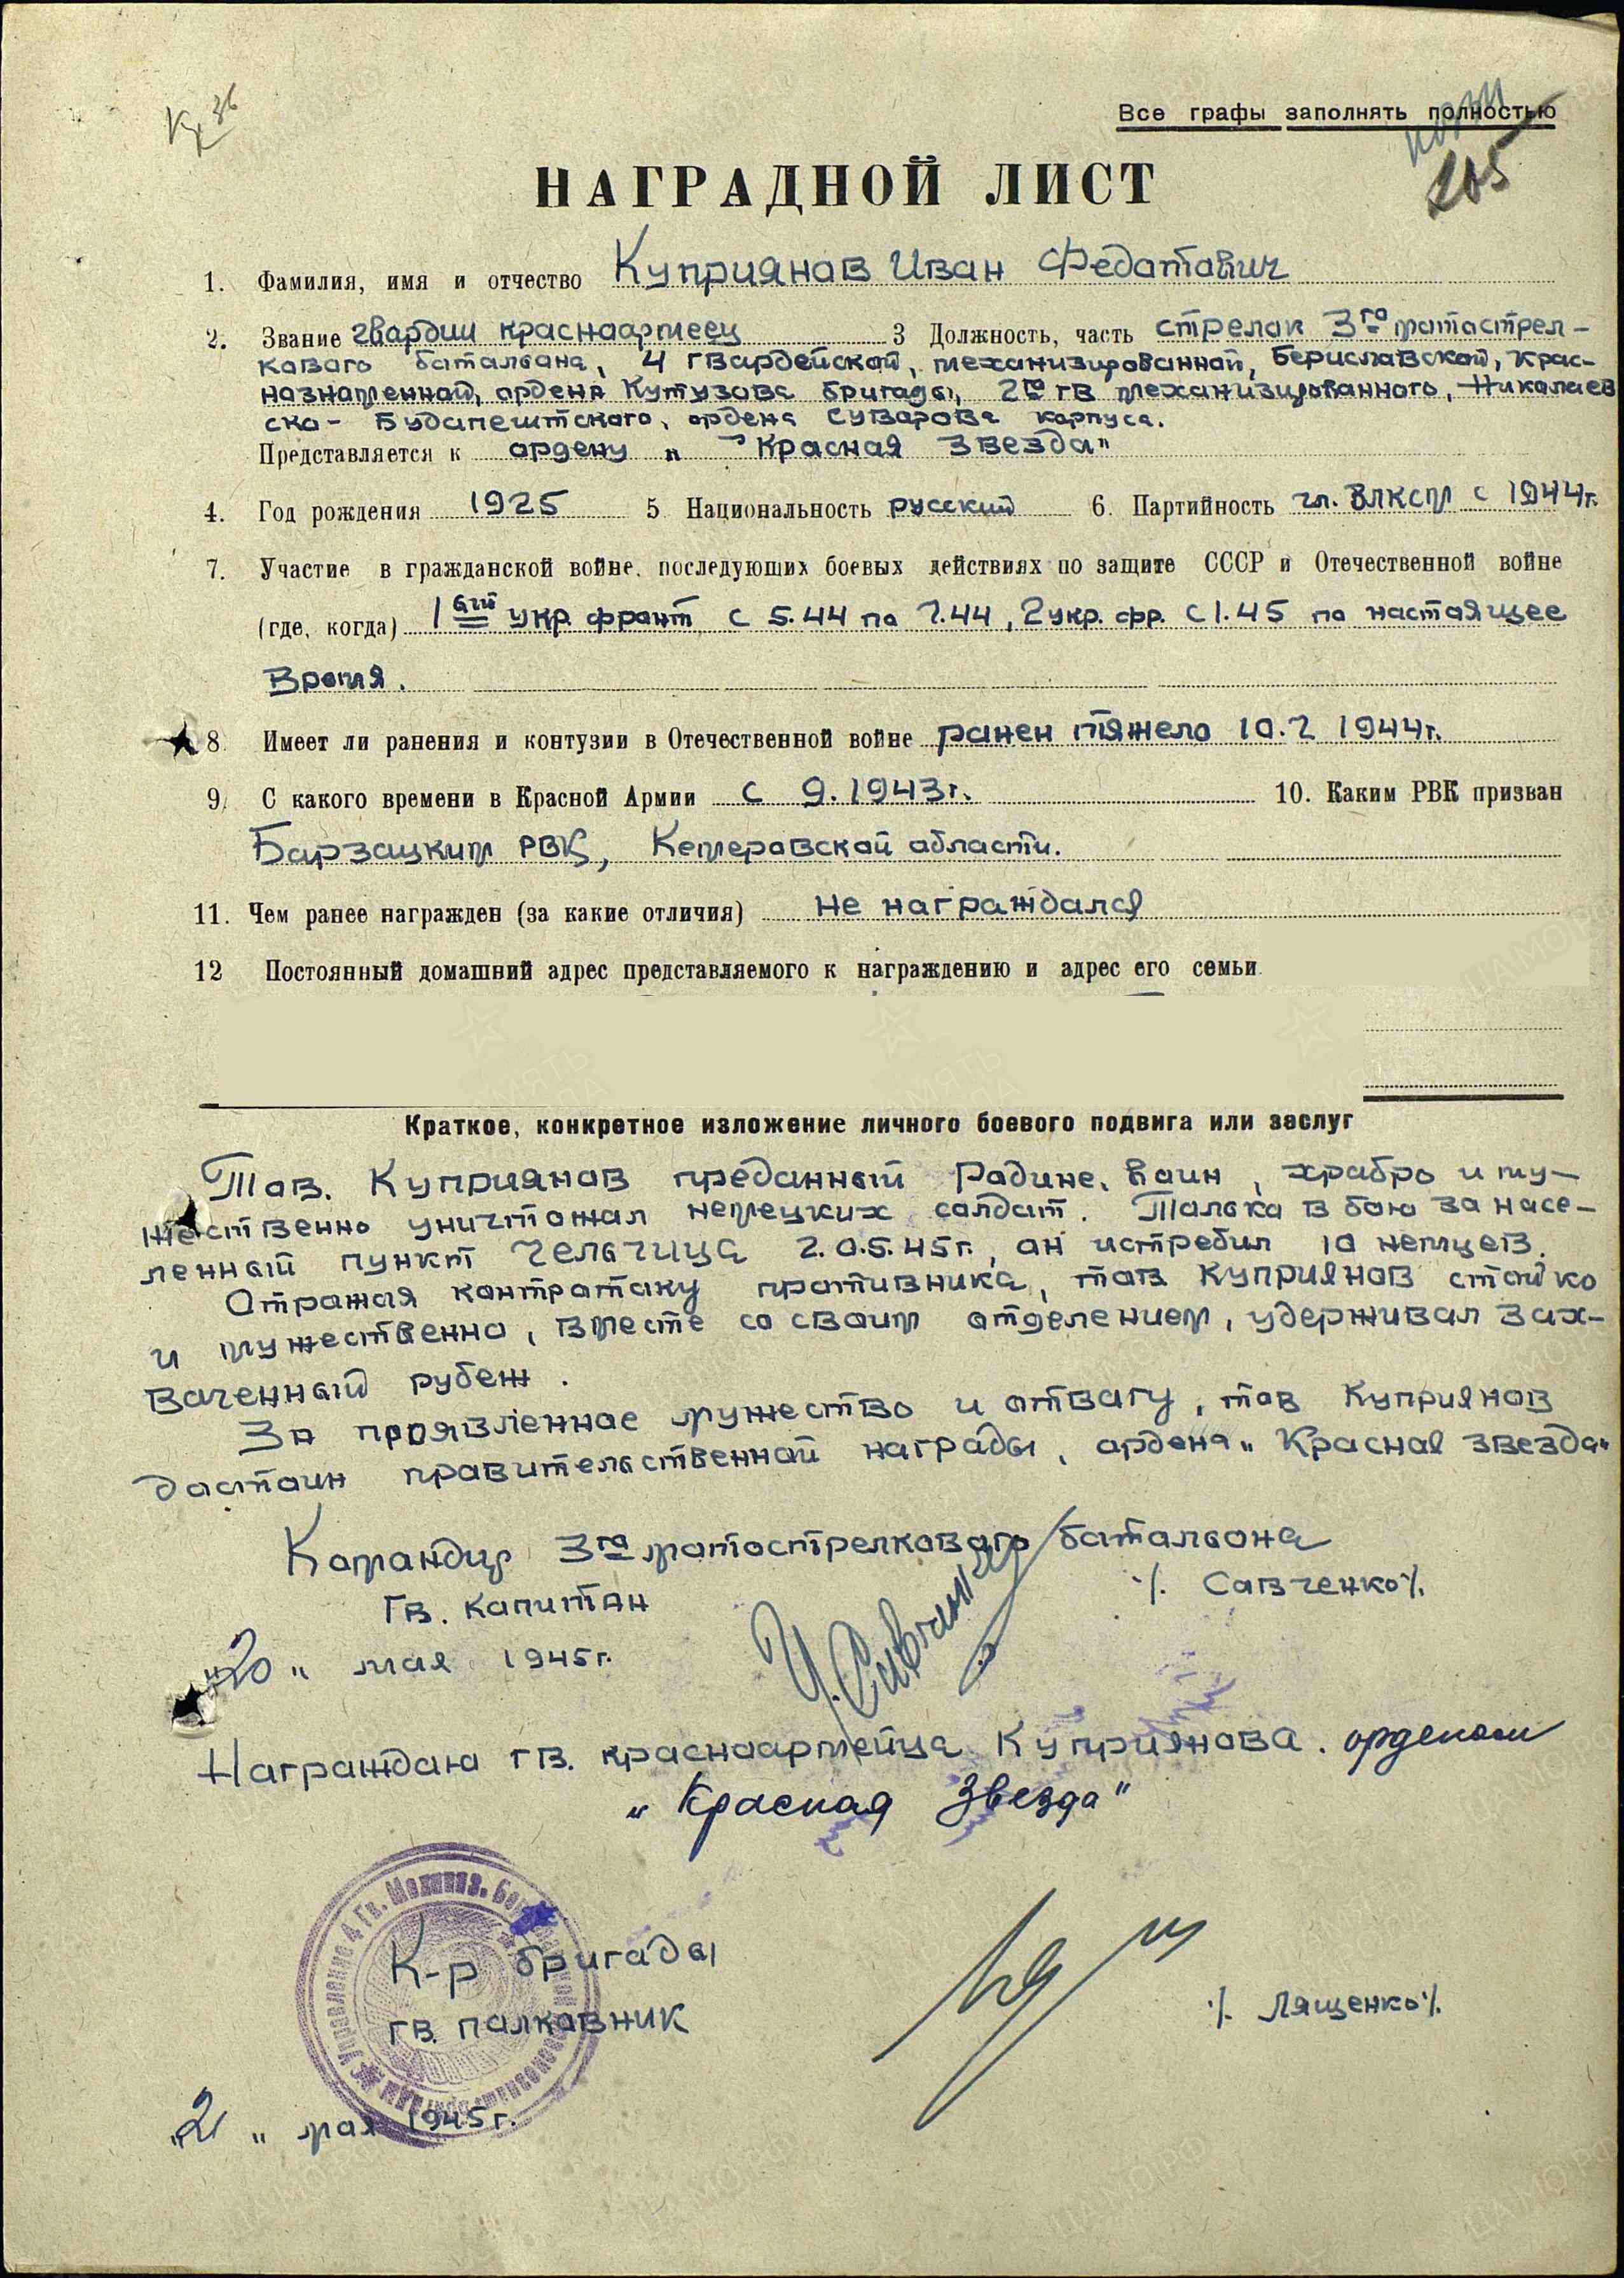 Кр 36
Все графы заполнять полностью
205
НАГРАДНОЙ ЛИСТ
1. Фамилия, имя и отчество Куприянов Иван Федотович
2. Звание гвардии красноармеец 3 Должность, часть стрелок 3го мотострел-
кового батальона, 4 гвардейской, механизированной, Бериславской, Крас-
нознаменной, ордена Кутузова бригады, 2го гв механизированного, Николаев
ско- Будапештского, ордена Суворова корпуса.
Представляется к ордену " Красная Звезда"
4. Год рождения 1925 5 Национальность русский 6. Партийность чл. ВЛКСМ с 1944г.
7. Участие в гражданской войне, последующих боевых действиях по защите СССР и Отечественной войне
(где, когда) 1ый укр. фронт с 5.44 по 7.44, 2 укр. фр. с 1.45 по настоящее
время.
8 Имеет ли ранения и контузии в Отечественной войне ранен тяжело 10.7 1944г.
9. С какого времени в Красной Армии с 9.1943г. 10. Каким РВК призван
Барзацким РВК, Кемеровской области.
11. Чем ранее награжден (за какие отличия) не награждался
12 Постоянный домашний адрес представляемого к награждению и адрес его семьи
Краткое, конкретное изложение личного боевого подвига или заслуг
Тов. Куприянов преданный Родине, воин, храбро и му-
жественно уничтожал немецких солдат. Только в бою за насе-
ленный пункт Чельчица 2.0.5.45г., он истребил 10 немцев.
Отражая контратаку противника, тов Куприянов стойко
и мужественно, вместе со своим отделением, удерживал зах-
ваченный рубеж.
За проявленное мужество и отвагу, тов Куприянов
достоин правительственной награды, ордена "Красная звезда"
Командир 3го мотострелкового батальона
Гв. капитан ./. Савченко ./.
"20" мая 1945г.
Награждаю гв. красноармейца Куприянова орденом
"Красная Звезда"
К-р бригады
гв. полковник ./. Лященко ./.
"2 " мая 1945г.